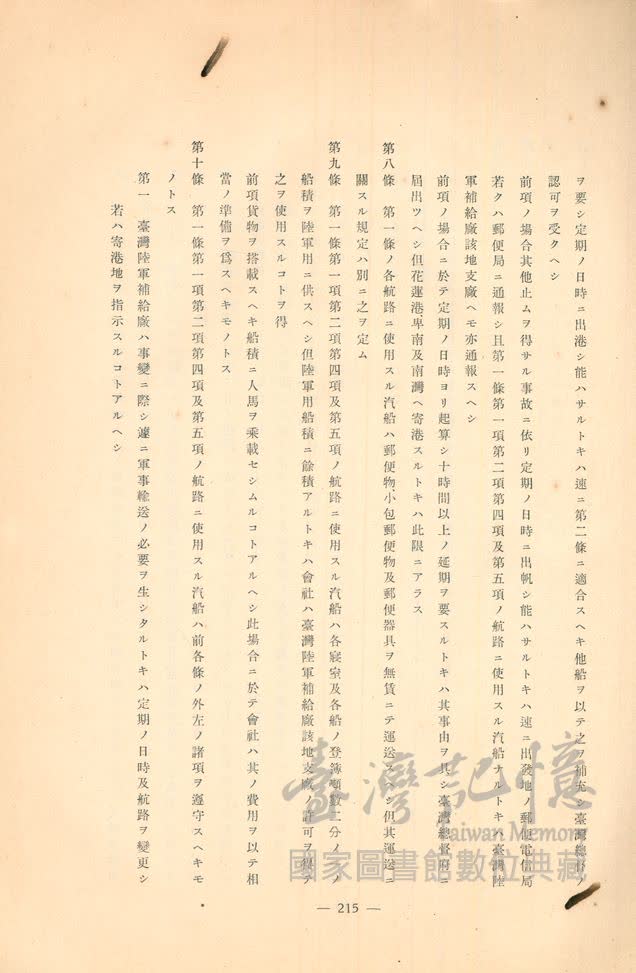 ヲ要シ定期ノ日時ニ出港シ能ハサルトキハ速ニ第二條ニ適合スヘキ他船ヲ以テ之ヲ補充シ臺灣總督ノ
認可ヲ受クヘシ
前項ノ場合其他止ムヲ得サル事故ニ依リ定期ノ日時ニ出帆シ能ハサルトキハ速ニ出發地ノ郵便電信局
若クハ郵便局ニ通報シ且第一條第一項第二項第四項及第五項ノ航路ニ使用スル汽船ナルトキハ臺灣陸
軍補給廠該地支廠ヘモ亦通報スヘシ
前項ノ場合ニ於テ定期ノ日時ヨリ起算シ十時間以上ノ延期ヲ要スルトキハ其事由ヲ具シ臺灣總督府ニ
屆出ツヘシ但花蓮港卑南及南灣ヘ寄港スルトキハ此限ニアラス
第八條 第一條ノ各航路ニ使用スル汽船ハ郵便物小包郵便物及郵便器具ヲ無賃ニテ運送スヘシ但其運送ニ
關スル規定ハ別ニ之ヲ定ム
第九條 第一條第一項第二項第四項及第五項ノ航路ニ使用スル汽船ハ各寢室及各船ノ登簿噸數二分ノ一ノ
船積ヲ陸軍用ニ供スヘシ但陸軍用船積ニ餘積アルトキハ會社ハ臺灣陸軍補給廠該地支廠ノ許可ヲ得テ
之ヲ使用スルコトヲ得
前項貨物ヲ搭載スヘキ船積ニ人馬ヲ乘載セシムルコトアルヘシ此場合ニ於テ會社ハ其ノ費用ヲ以テ相
當ノ準備ヲ爲スヘキモノトス
第十條 第一條第一項第二項第四項及第五項ノ航路ニ使用スル汽船ハ前各條ノ外左ノ諸項ヲ遵守スヘキモ
ノトス
第一 臺灣陸軍補給廠ハ事變ニ際シ遽ニ軍事輸送ノ必要ヲ生シタルトキハ定期ノ日時及航路ヲ變更シ
若ハ寄港地ヲ指示スルコトアルヘシ
— 215 —
臺灣記憶
Taiwan Memory
國家圖書館數位典藏